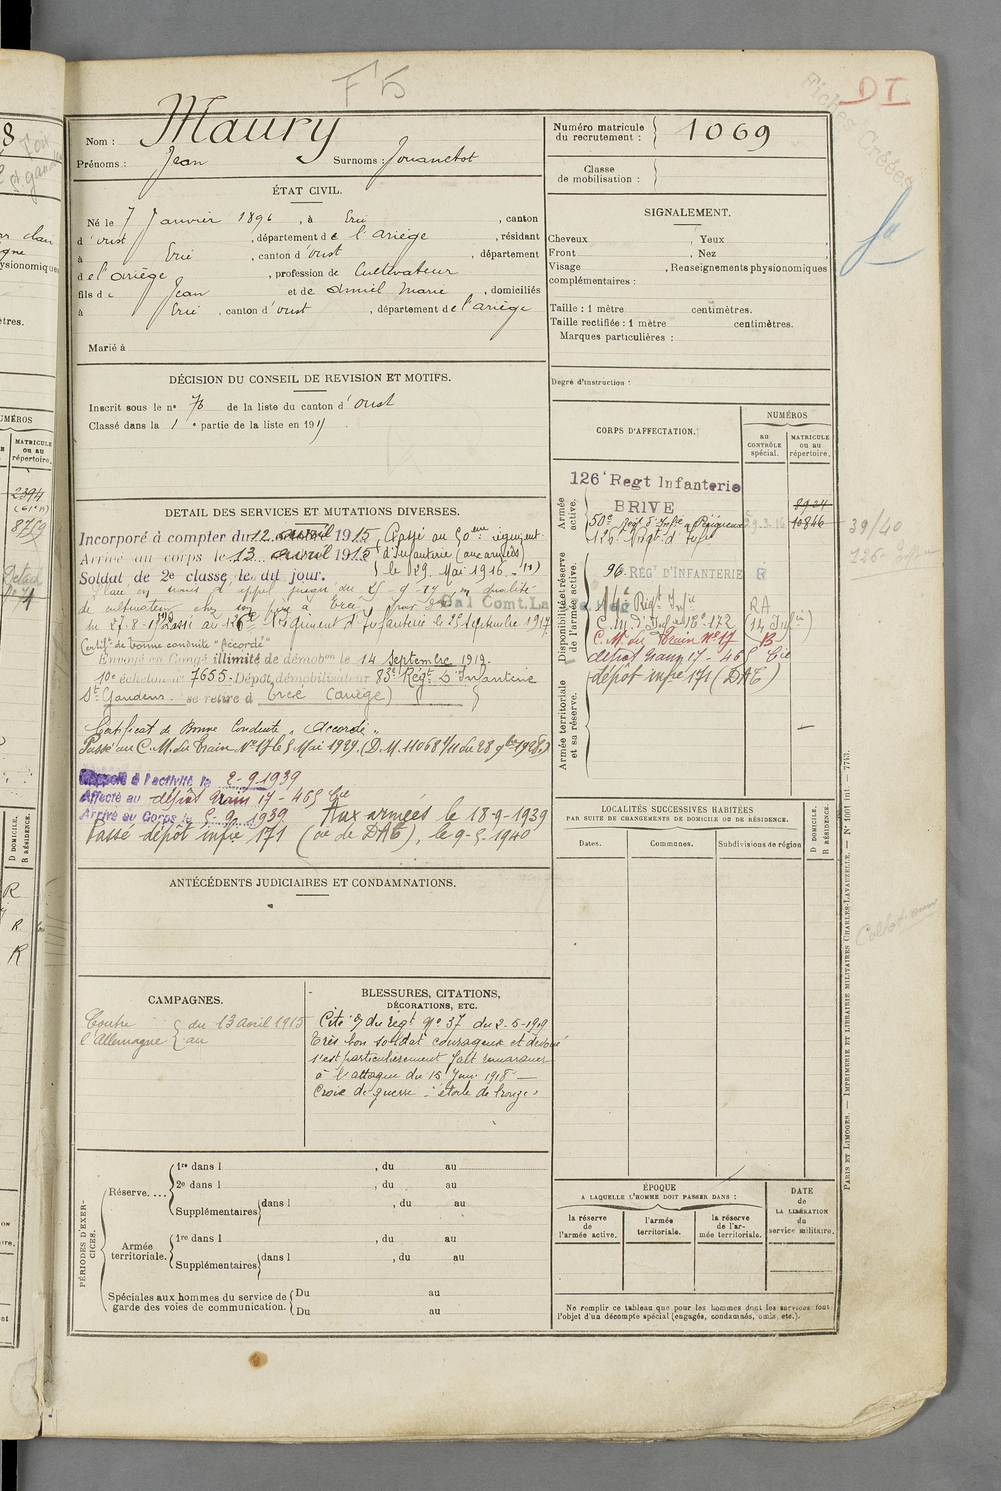 F 5
DI
Fiches Créées
Nom : Maury
Prénoms : Jean Surnoms : Jouanchot
Numéro matricule du recrutement : 1069
Classe de mobilisation :
ÉTAT CIVIL.
Né le 7 Janvier 1896, à Ercé, canton
d'oust, département de l'Ariège, résidant
à Ercé, canton d'oust, département
de l'ariège, profession de Cultivateur
fils de Jean et de Amiel Marie, domiciliés
à Ercé, canton d'oust, département de l'ariège
Marié à
SIGNALEMENT.
Cheveux , Yeux ,
Front , Nez ,
Visage , Renseignements physionomiques
complémentaires :
Taille : 1 mètre centimètres.
Taille rectifiée : 1 mètre centimètres.
Marques particulières :
Degré d'instruction :
DÉCISION DU CONSEIL DE REVISION ET MOTIFS.
Inscrit sous le n° 76 de la liste du canton d'oust
Classé dans la 1e partie de la liste en 1915.
CORPS D'AFFECTATION.
NUMÉROS
au CONTRÔLE spécial.
MATRICULE ou au répertoire.
Armée active.
126e Regt Infanterie
BRIVE
50e Regt d'Infie à Périgueux 29.3.16 10846
126e Regt d'Infie
Disponibilité et réserve de l'armée active.
96 REGt D'INFANTERIE
14e Regt Infie RA
C.M. d'Infie N° 172 (14 Infie)
C.M. du Train N° 17 B
dépôt train 17 - 465 Cie
dépôt infie 171 (DAE)
Armée territoriale et sa réserve.
39/40
DETAIL DES SERVICES ET MUTATIONS DIVERSES.
Incorporé à compter du 12 avril 1915, Passé au 50eme régiment
Arrivé au corps le 13 avril 1915 d'Infanterie (aux armées)
Soldat de 2e classe, le dit jour. le 29 Mai 1916
du 27-8-17 Passé au 126e Régiment d'Infanterie le 25 Septembre 1917
Certif. de bonne conduite "Accordé"
Envoyé en Congé illimité de démobon le 14 Septembre 1919.
10e échelon n° 7655. Dépôt démobilisateur 83e Régt D'Infanterie
St Gaudens se retire à Ercé (Ariège)
Certificat de Bonne Conduite "Accordé"
Passé au C.M. du Train N° 17 le 5 Mai 1929. (D.M. 11068 1/11 du 28 9bre 1928.)
Rappelé à l'activité le 2-9-1939
Affecté au dépôt train 17 - 465 Cie
Arrivé au Corps le 5-9-1939 Aux armées le 18-9-1939
Passé dépôt infie 171 (cie de DAE), le 9-5-1940
ANTÉCÉDENTS JUDICIAIRES ET CONDAMNATIONS.
LOCALITÉS SUCCESSIVES HABITÉES
PAR SUITE DE CHANGEMENTS DE DOMICILE OU DE RÉSIDENCE.
Dates.
Communes.
Subdivisions de région
D DOMICILE.
R RÉSIDENCE.
CAMPAGNES.
Contre l'Allemagne du 13 avril 1915
au
BLESSURES, CITATIONS,
DÉCORATIONS, ETC.
Cité O du Régt N° 37 du 2-5-1919
Très bon soldat courageux et dévoué
s'est particulièrement fait remarquer
à l'attaque du 15 Juin 1918 —
Croix de guerre : étoile de bronze
PÉRIODES D'EXERCICES.
Réserve....
1re dans l , du au
2e dans l , du au
Supplémentaires dans l , du au
Armée territoriale.
1re dans l , du au
Supplémentaires dans l , du au
Spéciales aux hommes du service de garde des voies de communication.
Du au
Du au
ÉPOQUE
A LAQUELLE L'HOMME DOIT PASSER DANS :
la réserve de l'armée active.
l'armée territoriale.
la réserve de l'armée territoriale.
DATE de LA LIBÉRATION du service militaire.
Ne remplir ce tableau que pour les hommes dont les services font
l'objet d'un décompte spécial (engagés, condamnés, omis, etc.).
PARIS ET LIMOGES. — IMPRIMERIE ET LIBRAIRIE MILITAIRES CHARLES-LAVAUZELLE. — N° 1001 int. — 7743.